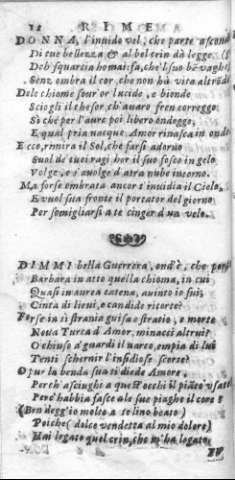 12 RIME
DONNA, l'inuido vel, che parte ascond
Di tue bellezza & al bel crin dà legge,
Deh squarcia homai: sa, che'l suo bē vagh
Senz ombra il cor, che non hà vita altrōd
Dele chiome four' or lucido, e bionde
Sciogli il thesor, ch'auaro fren corregge:
Sì chè per l'aure poi libero ondegge,
E qual pria nacque Amor rinasca in onde
Ecco, rimira il Sol, che farsi adorno
Suol de tuoi ragi hor il suo foco in gelo
Volge, e s'auolge d'atra nube intorno.
Ma forse ombrata ancor t'inuidia il Cielo,
E vuol sita fronte il portator del giorno
Per somigliarsi a te cinger d'un velo.
DIMMI bella Guerrera, ond'è, che por
Barbara in atto quella chioma, in cui
Quasi in aurea catena, auinto io fui,
Cinta di lieui, e candide ritorte?
Forse in sì strania guisa o stratio, o morte
Noua Turca d'Amor, minacci altrui?
O chiuso a' guardi il varco, empia di lui
Tenti schernir l'insidiose scorte?
O pur la benda sua ti diede Amore
Perch' asciughe a quest'occhi il piāto vsa
Perc'habbia fasce a le sue piaghe il core?
(Ben deggio molto a te lino beato)
Poiche (dolce vendetta al mio dolore)
Hai legato quel crin, che m'ha legato.